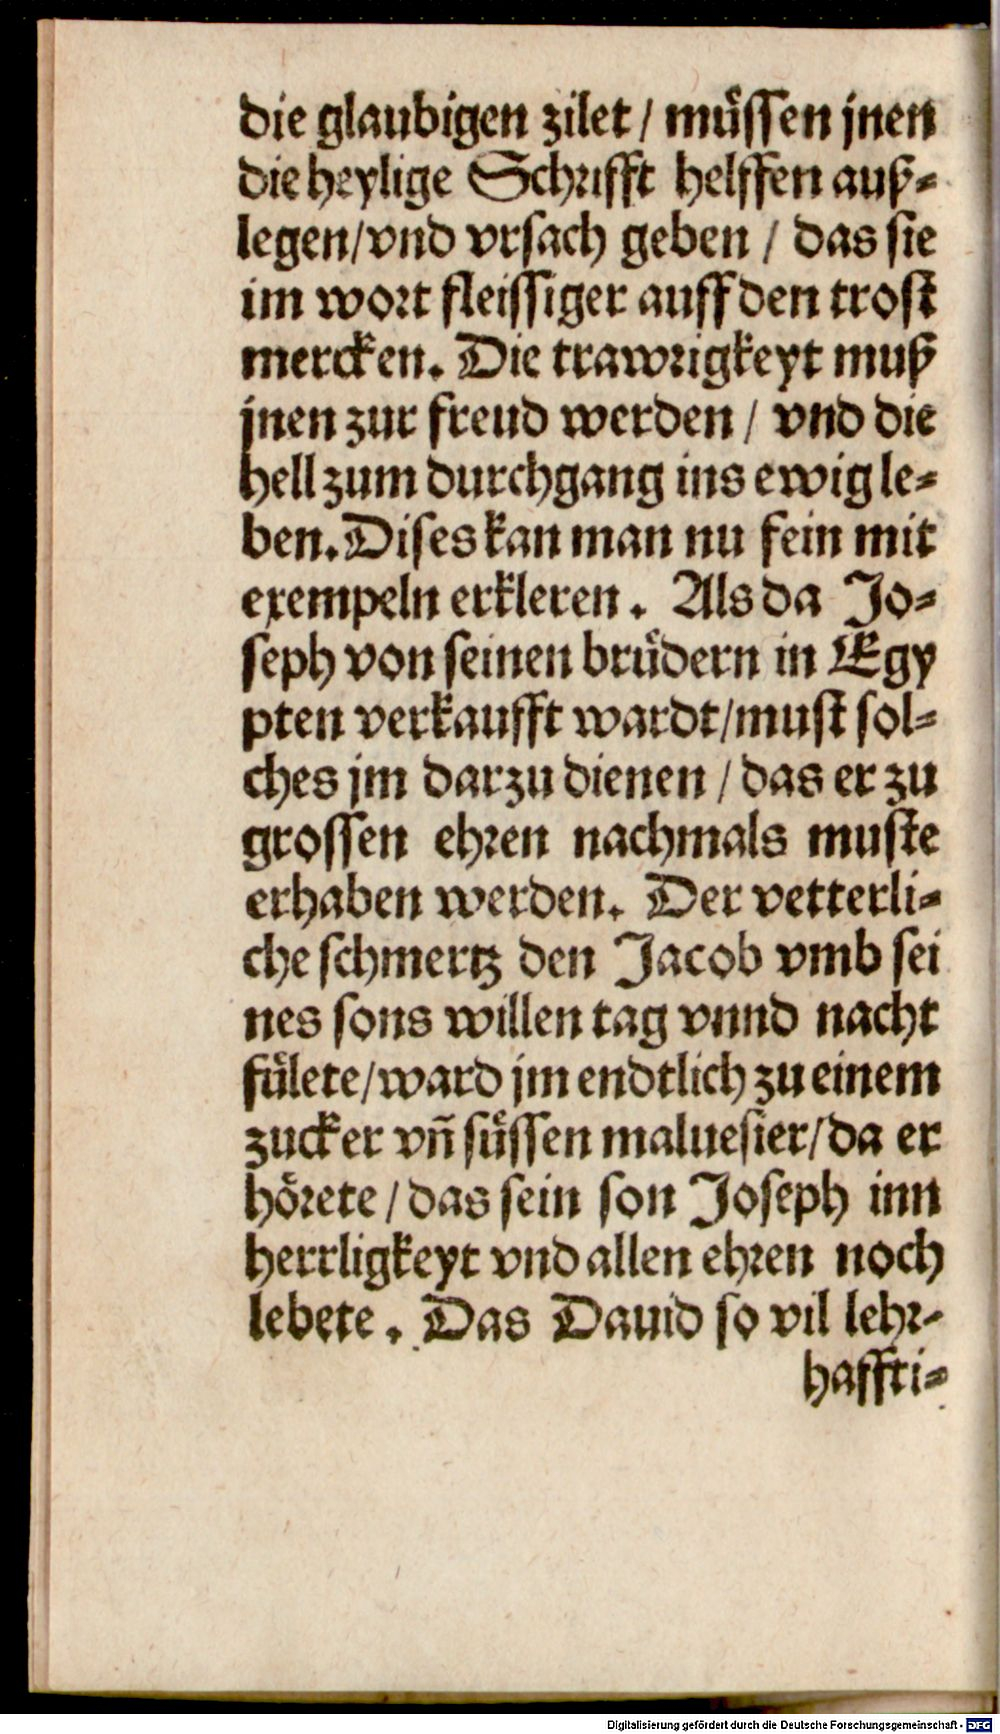 die glaubigen zilet / müssen jnen
die heylige Schrifft helffen auß-
legen/vnd vrsach geben / das sie
im wort fleissiger auff den trost
mercken. Die trawrigkeyt muß
jnen zur freud werden / vnd die
hell zum durchgang ins ewig le-
ben. Dises kan man nu fein mit
exempeln erkleren. Als da Jo-
seph von seinen brüdern in Egy
pten verkaufft wardt/must sol-
ches jm darzu dienen / das er zu
grossen ehren nachmals muste
erhaben werden. Der vetterli-
che schmertz den Jacob vmb sei
nes sons willen tag vnnd nacht
fülete/ward jm endtlich zu einem
zucker vñ süssen maluesier/da er
hörete / das sein son Joseph inn
herrligkeyt vnd allen ehren noch
lebete. Das Dauid so vil lehr-
haffti-
Digitalisierung gefördert durch die Deutsche Forschungsgemeinschaft - DFG